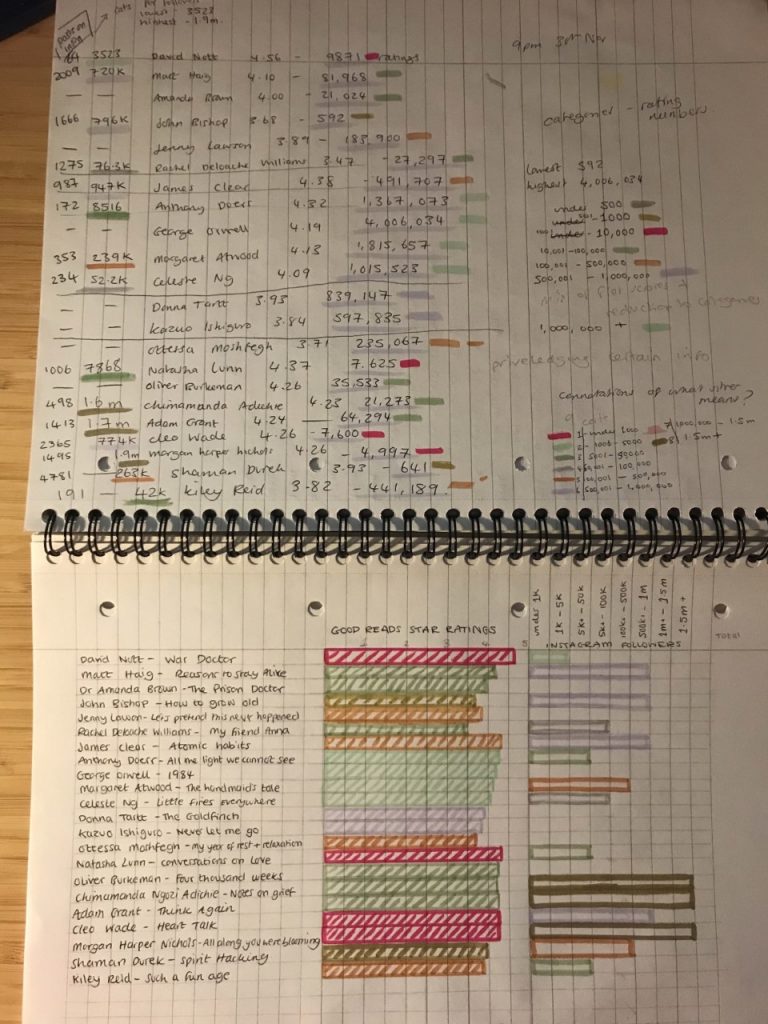 lowest - 3523
highest - 1.9m
9pm
3523 David Nott 4.56 - 9871 ratings
2009 720K Matt Haig 4.10 - 81,968
— — Amanda Brown 4.00 - 21,024
1666 796K John Bishop 3.68 - 592
— — Jenny Lawson 3.89 - 183,900
1275 76.3K Rachel Deloache Williams 3.47 - 27,297
987 947K James Clear 4.38 - 491,707
172 8516 Anthony Doerr 4.32 1,367,073
— — George Orwell 4.19 4,006,034
353 239K Margaret Atwood 4.13 1,815,657
234 52.2K Celeste Ng 4.09 1,015,523
— — Donna Tartt 3.93 839,147
— — Kazuo Ishiguro 3.84 597,835
— — Ottessa Moshfegh 3.71 235,067
1006 7868 Natasha Lunn 4.37 7.625
— — Oliver Burkeman 4.26 35,533
498 1.6m Chimamanda Adichie 4.23 21,273
1413 1.7m Adam Grant 4.24 64,294
2365 774K Cleo Wade 4.26 - 7,600
1495 1.9m Morgan harper nichols 4.26 - 4,997
4781 — 263K Shaman Durek 3.93 - 641
191 — 42K Kiley Reid 3.82 - 441,189
categories - rating
numbers
lowest 592
highest 4,006,034
under 500
501 - 1000
under - 10,000
10,001 - 100,000
100,001 - 500,000
500,001 - 1,000,000
1,000,000 +
priveledging certain info
connotations of what silver
means?
GOOD READS STAR RATINGS
1 2 3 4 5
under 1K
1K - 5K
5K+ - 50K
5K+ - 100K
100K+ - 500K
500K+ - 1m
1m+ - 1.5m
1.5m+
INSTAGRAM FOLLOWERS
TOTAL
David Nott - War Doctor
Matt Haig - Reasons to Stay Alive
Dr Amanda Brown - The Prison Doctor
John Bishop - How to grow old
Jenny Lawson - Lets pretend this never happened
Rachel Deloache Williams - my friend Anna
James Clear - Atomic habits
Anthony Doerr - All the light we cannot see
George Orwell - 1984
Margaret Atwood - The handmaid's tale
Celeste Ng - Little Fires Everywhere
Donna Tartt - The Goldfinch
Kazuo Ishiguro - Never let me go
Ottessa Moshfegh - my year of rest + relaxation
Natasha Lunn - conversations on Love
Oliver Burkeman - Four thousand weeks
Chimamanda Ngozi Adichie - Notes on grief
Adam Grant - Think Again
Cleo Wade - Heart Talk
Morgan Harper Nichols - All along you were blooming
Shaman Durek - Spirit Hacking
Kiley Reid - Such a fun age